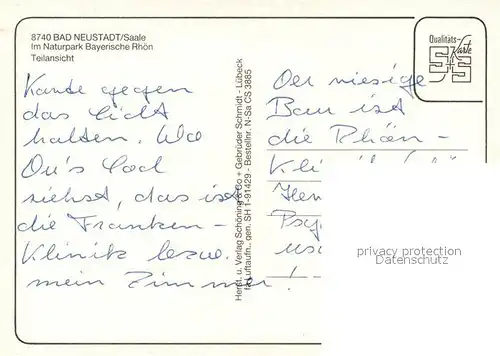 8740 BAD NEUSTADT/Saale
Im Naturpark Bayerische Rhön
Teilansicht
Karte gegen
das Licht
halten. Wo
Du's Loch
siehst, das ist
die Franken-
Klinik bezw.
mein Zimmer!
Herst. u. Verlag Schöning & Co + Gebrüder Schmidt - Lübeck
fü Luftaufn., gen. SH 1-91429 - Bestellnr. N-Sa CS 3885
Der riesige
Bau ist
die Rhön-
Kli
Qualitäts-
Karte
privacy protection
Datenschutz